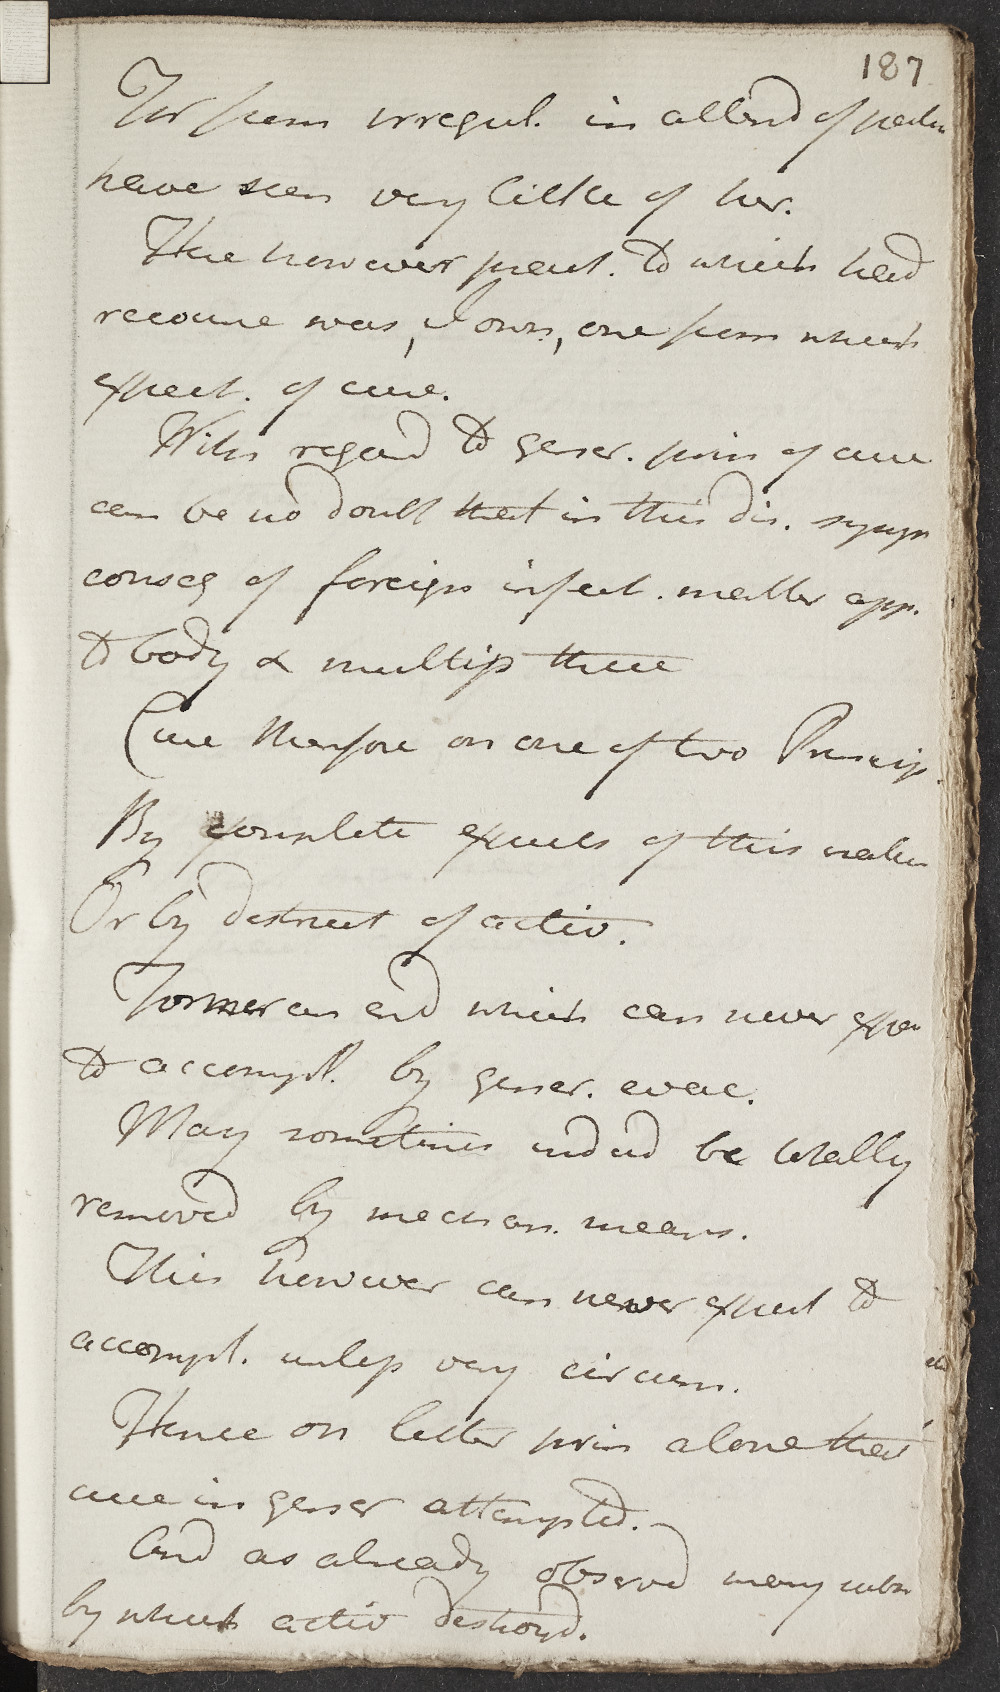 187
For from irregul. in attend of patien
have seen very little of her.
The however pract. to which had
recourse was, I own, one from which
expect. of cure.
With regard to gener. prin of cure
can be no doubt that in this dis. symp
conseq of foreign infect. matter app.
to body & multip there
Cure therefore on one of two Princip.
By complete expuls of this matter
Or by destruct of activ.
Former an end which can never expec
to accompl. by gener. evac.
May sometimes indeed be totally
removed by mechan. means.
This however can never expect to
accompl. unless very circum.
Hence on latter prin alone that
cure in gener attempted.
And as already observed many subs
by which activ destroyd.